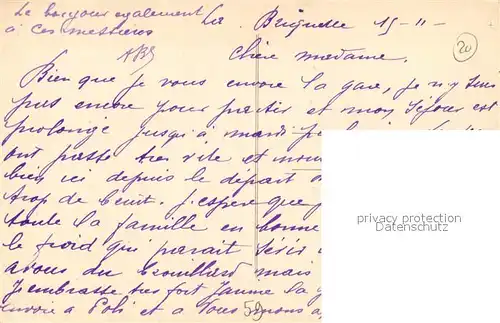 Le bonjour également
à ces messieurs
La Briquette 15-11-
20
Chère madame.
Bien que je vous envoie la gare, je n'y suis
pas encore pour partir et mon séjour est
prolongé jusqu'à mardi
ont passé très vite et nous
bien ici depuis le départ
trop de bruit. J'espère que
toute la famille en bonne
le froid qui parait sérir
avons du brouillard mais
J'embrasse très fort Janine la
envoie à Poli et à Vous
59
privacy protection